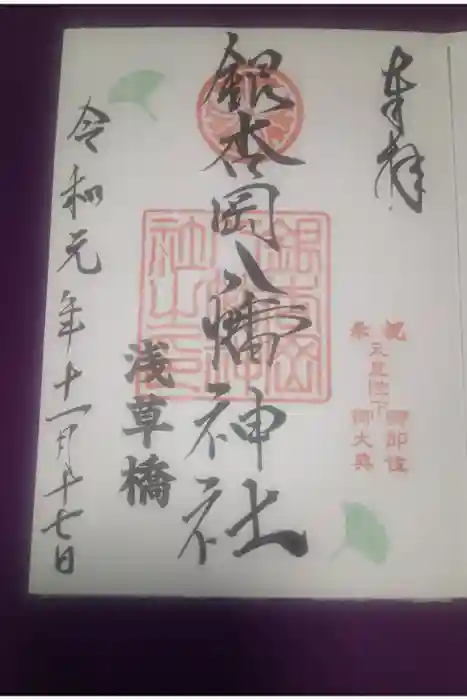 奉拝
奉祝
天皇陛下
御即位
御大典
銀杏岡八幡神社
浅草橋
令和元年十一月十七日